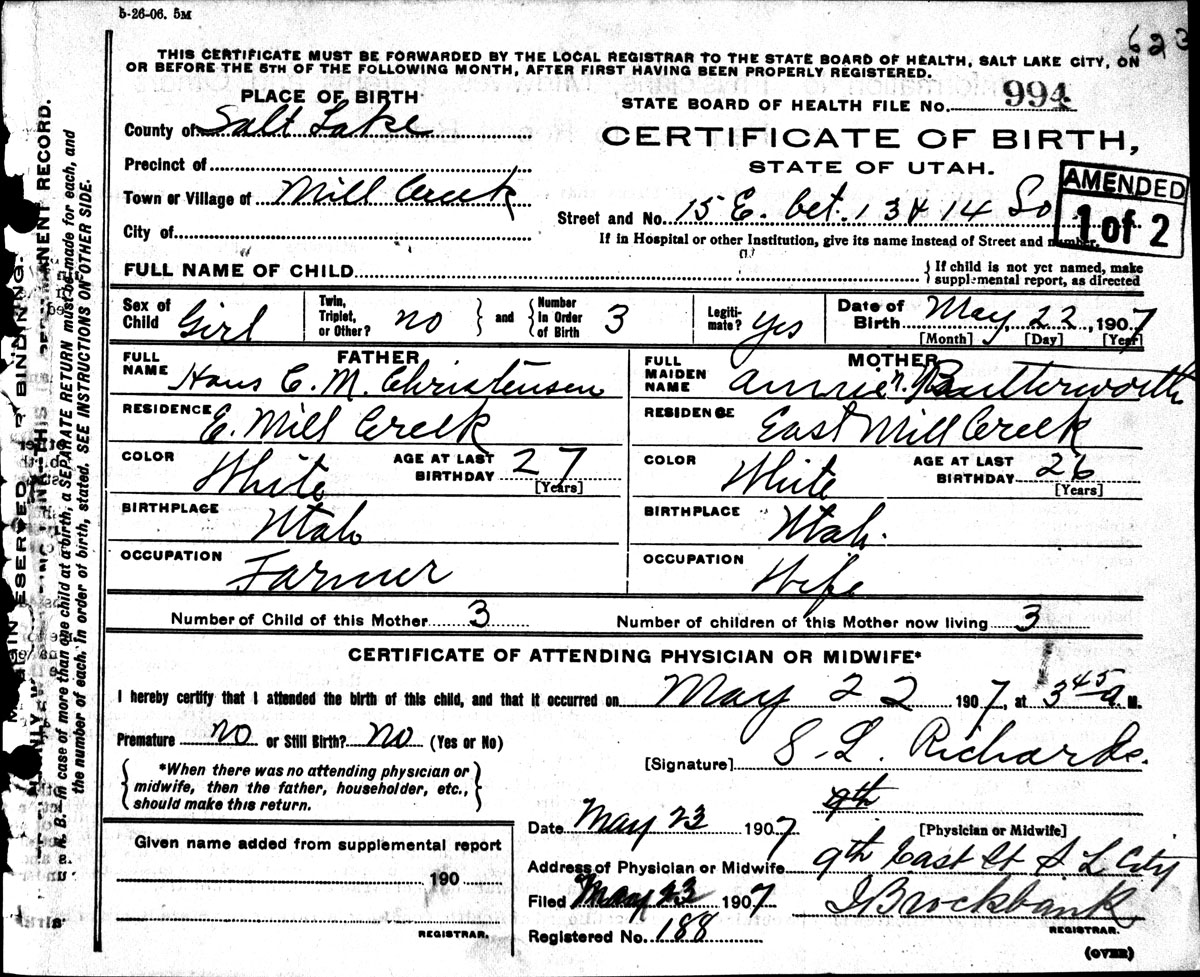 5-26-06. 5M
623
THIS CERTIFICATE MUST BE FORWARDED BY THE LOCAL REGISTRAR TO THE STATE BOARD OF HEALTH, SALT LAKE CITY, ON
OR BEFORE THE 5TH OF THE FOLLOWING MONTH, AFTER FIRST HAVING BEEN PROPERLY REGISTERED.
PLACE OF BIRTH
County of Salt Lake
Precinct of
Town or Village of Mill Creek
City of
STATE BOARD OF HEALTH FILE No. 994
CERTIFICATE OF BIRTH,
STATE OF UTAH.
AMENDED
1 of 2
Street and No. 15 E. bet. 13 & 14 So
If in Hospital or other Institution, give its name instead of Street and number.
FULL NAME OF CHILD
If child is not yet named, make
supplemental report, as directed
Sex of Child Girl
Twin, Triplet, or Other? no
and
Number in Order of Birth 3
Legiti-mate? yes
Date of Birth May, 22, 1907
[Month] [Day] [Year]
FATHER
FULL NAME Hans C. M. Christensen
RESIDENCE E. Mill Creek
COLOR White AGE AT LAST BIRTHDAY 27
[Years]
BIRTHPLACE Utah
OCCUPATION Farmer
MOTHER
FULL MAIDEN NAME Annie n. Butterworth
RESIDENCE East Mill Creek
COLOR White AGE AT LAST BIRTHDAY 26
[Years]
BIRTHPLACE Utah.
OCCUPATION Wife
Number of Child of this Mother 3 Number of children of this Mother now living 3
CERTIFICATE OF ATTENDING PHYSICIAN OR MIDWIFE*
I hereby certify that I attended the birth of this child, and that it occurred on May 22 1907, at 3 45 a. M.
Premature no or Still Birth? no (Yes or No)
*When there was no attending physician or
midwife, then the father, householder, etc.,
should make this return.
[Signature] S. L. Richards.
9th
[Physician or Midwife]
Date May 23 1907
Address of Physician or Midwife 9th East St S. L City
Filed May 23 1907 J Brockbank
REGISTRAR.
Registered No. 188
(OVER)
Given name added from supplemental report
190
REGISTRAR.
N. B. In case of more than one child at a birth, a SEPARATE RETURN must be made for each, and
the number of each, in order of birth, stated. SEE INSTRUCTIONS ON OTHER SIDE.